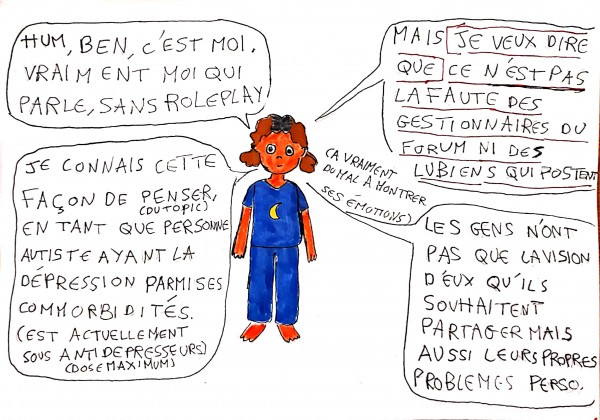 HUM, BEN, C'EST MOI,
VRAIMENT MOI QUI
PARLE, SANS ROLEPLAY
MAIS JE VEUX DIRE
QUE CE N'EST PAS
LA FAUTE DES
GESTIONNAIRES DU
FORUM NI DES
LUBIENS QUI POSTENT
JE CONNAIS CETTE
FAÇON DE PENSER,
(DU TOPIC)
EN TANT QUE PERSONNE
AUTISTE AYANT LA
DÉPRESSION PARMI SES
COMMORBIDITÉS.
(EST ACTUELLEMENT
SOUS ANTIDEPRESSEURS)
(DOSE MAXIMUM)
(A VRAIMENT
DU MAL À MONTRER
SES ÉMOTIONS)
LES GENS N'ONT
PAS QUE LA VISION
D'EUX QU'ILS
SOUHAITENT
PARTAGER MAIS
AUSSI LEURS PROPRES
PROBLEMES PERSO.